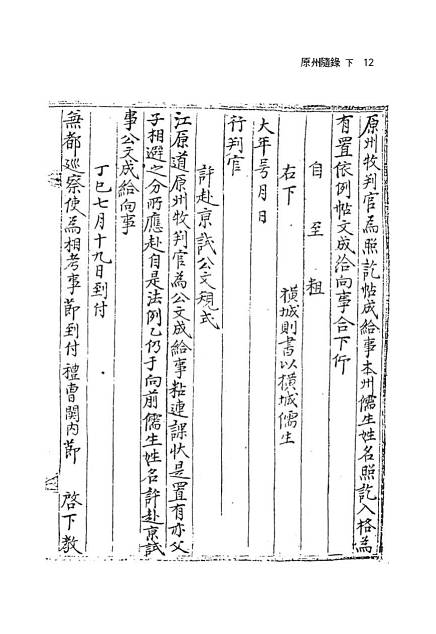 原州隨錄 下 12
原州牧判官為照訖帖成給事本州儒生姓名照訖入格為
有置依例帖文成給向事合下仰
自 至 粗
右下 橫城則書以橫城儒生
大年号月日
行判官
許赴京試公文規式
江原道原州牧判官為公文成給事粘連課狀是置有亦父
子相避之分所應赴自是法例乙仍于向前儒生姓名許赴京試
事公文成給向事
丁巳七月十九日到付
兼都巡察使為相考事節到付禮曹関內節 啓下教